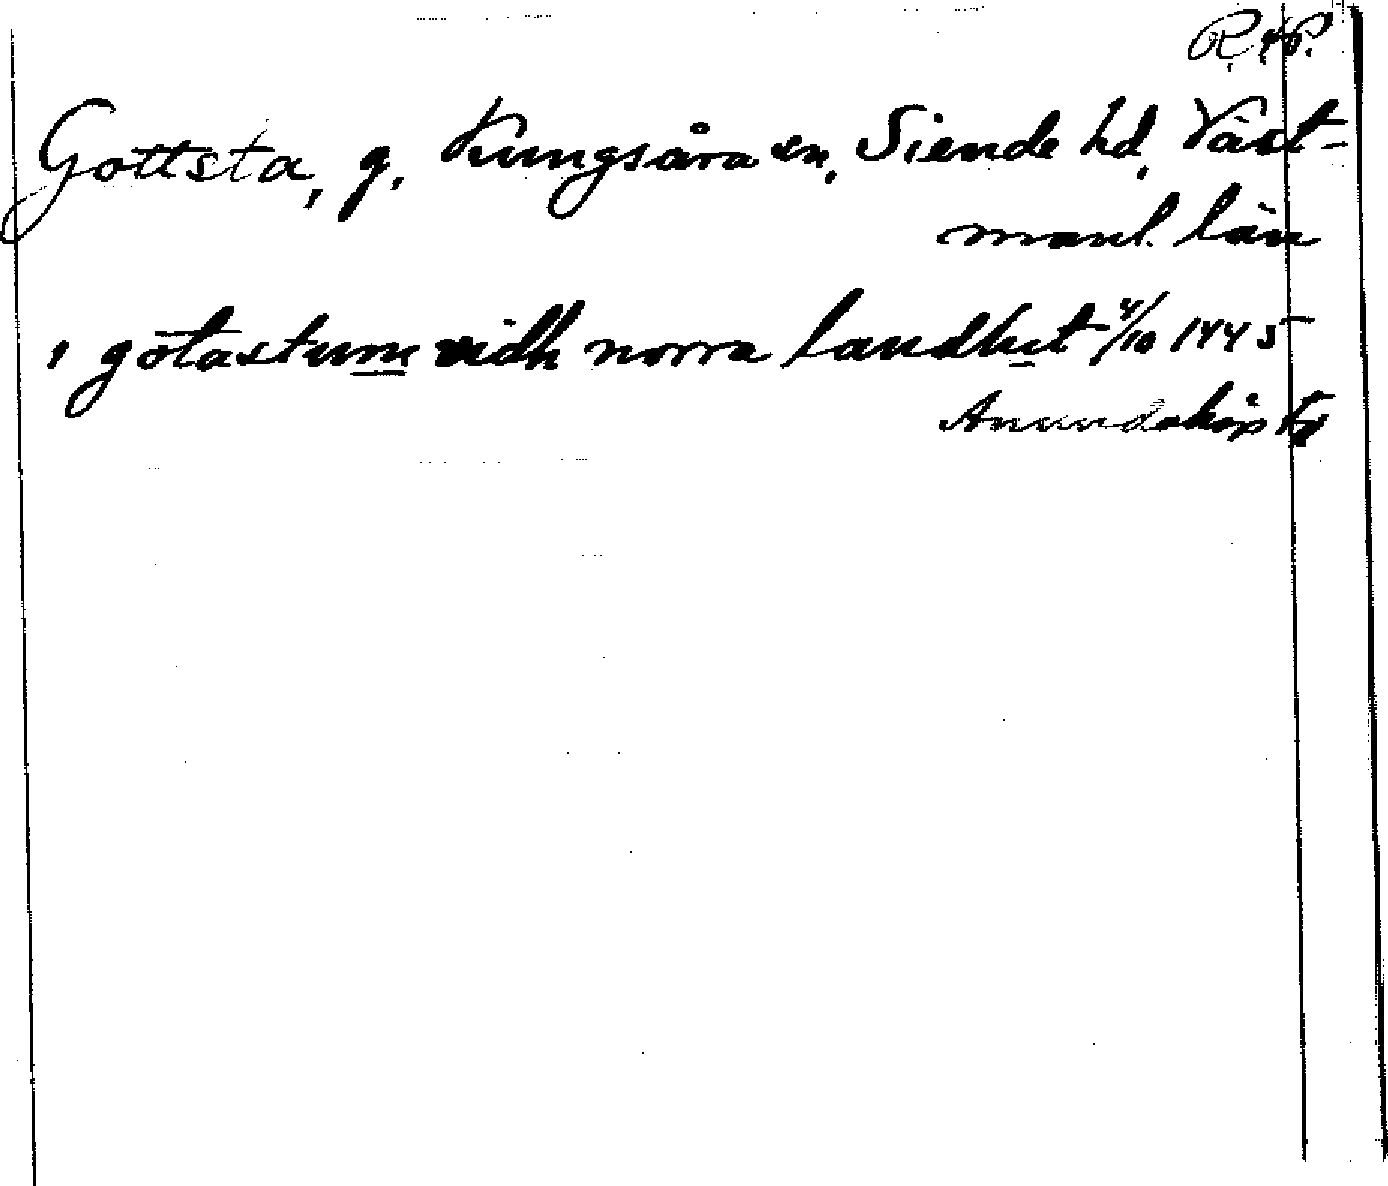 Gottsta, g. Kungsåra sn, Siende hd, Väst-
manl. län
i götastum vidh norra landhit 4/10 1445
Anundshög